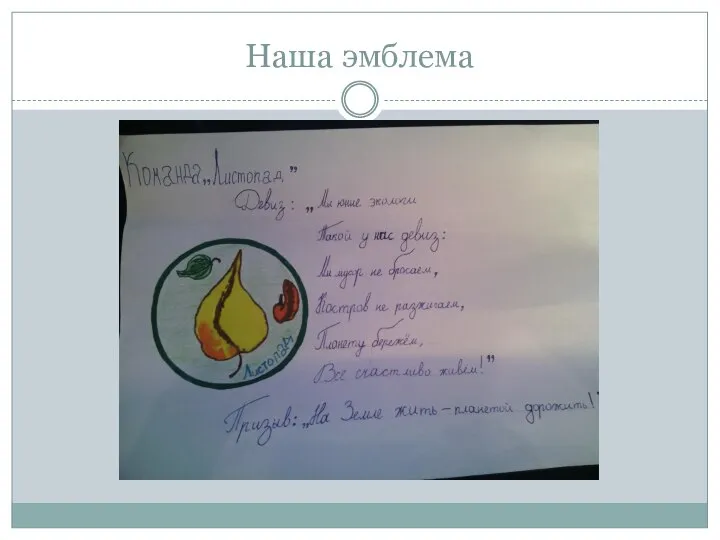 Наша эмблема
Команда „Листопад”
Девиз: „Ми юние экологи
Такой у нас девиз:
Ми мусор не бросаем,
Костров не разжигаем,
Планету бережём,
Все счастливо живём!”
Листопад
Призыв: „На Земле жить – планетой дорожить!”